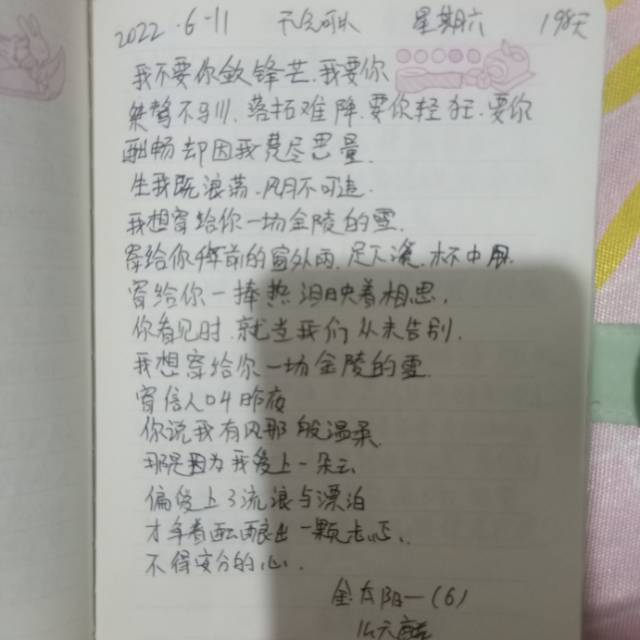 2022.6-11 星期六 198天
我不要你敛锋芒.我要你
桀骜不驯.落拓难降.要你轻狂.要你
酣畅却因我费尽思量.
生我既浪荡.风月不可追.
我想寄给你一场金陵的雪.
寄给你年前的窗外雨.足下 杯中月.
寄给你一捧热泪映着相思.
你看见时.就当我们从未告别.
我想寄给你一场金陵的雪.
寄信人叫昨夜
你说我有风那般温柔
那是因为我爱上一朵云
偏爱上了流浪与漂泊
才牵着 出一颗 .
不得安分的心.
金 阳一(6)